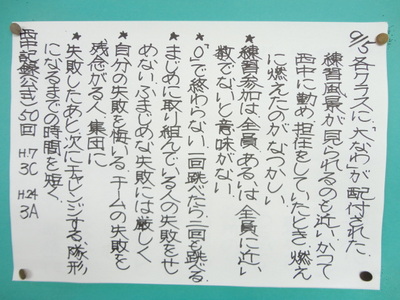 9/5 各クラスに「大なわ」が配付された。
練習風景が見られるのも近い。かつて
西中に勤め、担任をしていたとき、燃え
に燃えたのがなつかしい。
*練習参加は、全員、あるいは、全員に近い
数でないと意味がない。
*「0」で終わらない。一回跳べたら二回も跳べる。
*まじめに取り組んでいる人の失敗をせ
めない。ふまじめな失敗には厳しく。
*自分の失敗を悔いる、チームの失敗を
残念がる人、集団に。
*失敗したあと、次にチャレンジする、隊形
になるまでの時間を短く。
西中記録(公式)50回 H.7 3C H.24 3A